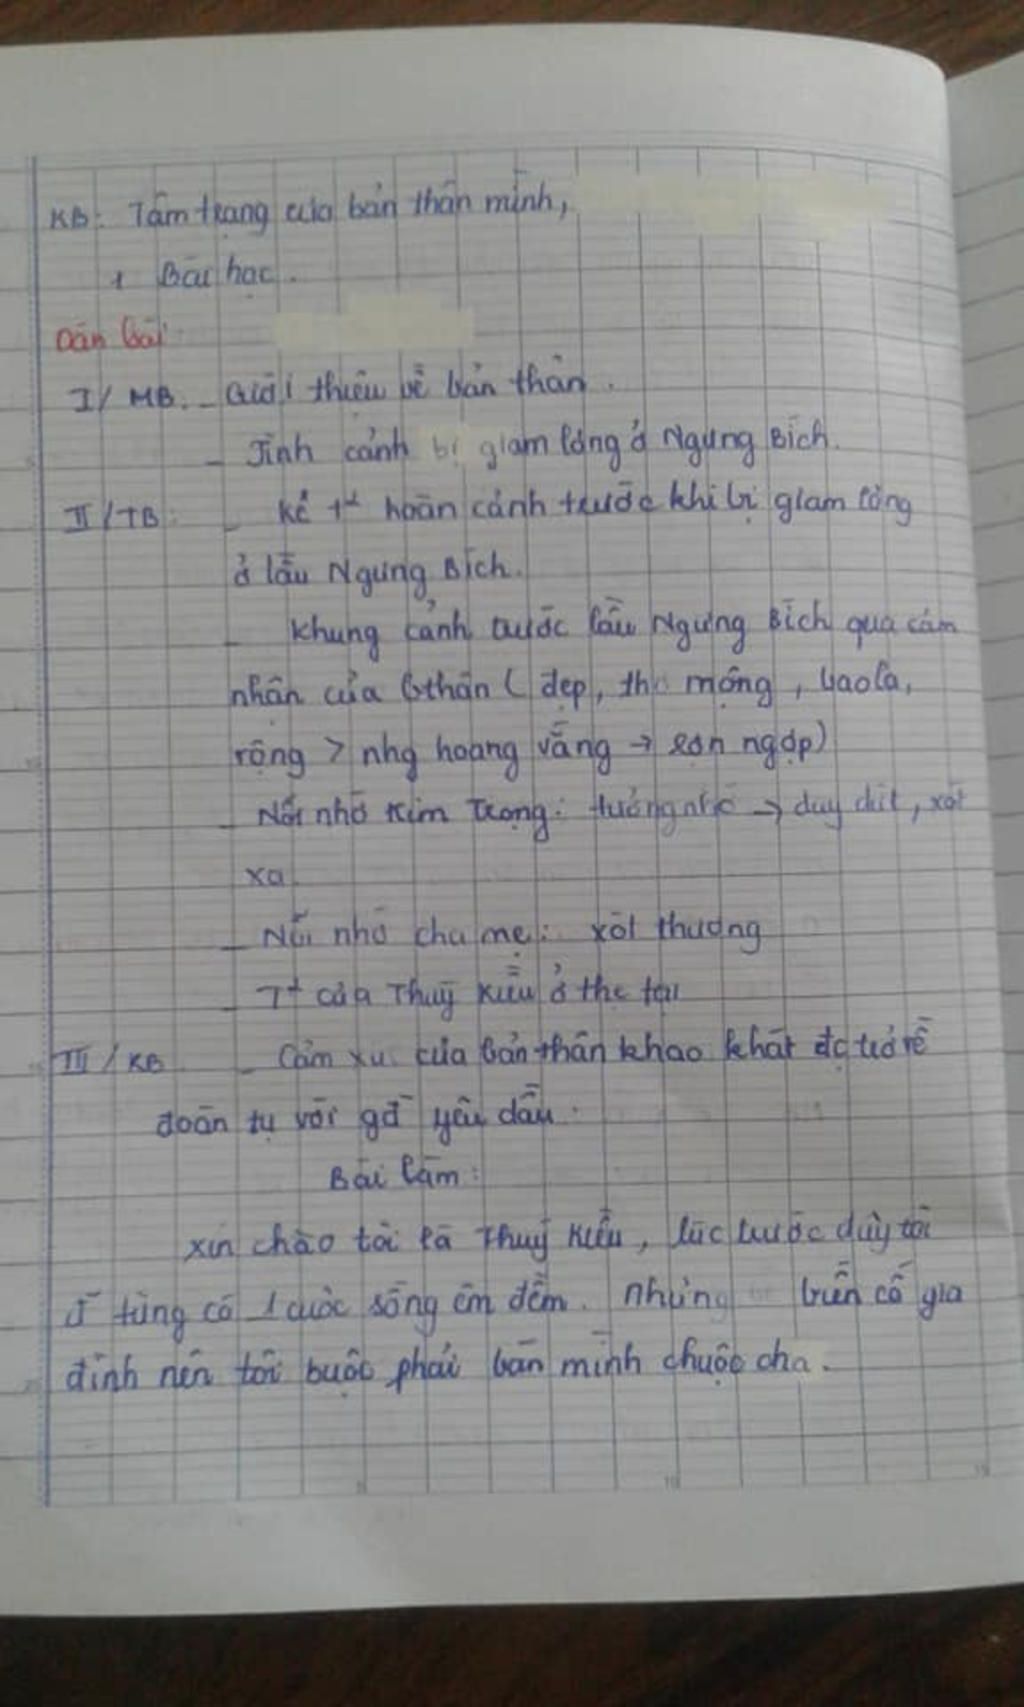 KB: Tâm trạng của bản thân mình,
+ Bài học.
Dàn bài:
I/ MB. - Giới thiệu về bản thân.
- Tình cảnh bị giam lỏng ở Ngưng Bích.
II/TB: - kể hoàn cảnh trước khi bị giam lỏng
ở lầu Ngưng Bích.
- khung cảnh trước lầu Ngưng Bích qua cảm
nhận của bthân ( đẹp, thơ mộng, bao la,
rộng > nhg hoang vắng → rợn ngợp)
- Nỗi nhớ Kim Trọng: tưởng nhớ → day dứt, xót
xa
- Nỗi nhớ cha mẹ: xót thương
- của Thuý Kiều ở thực tại
III/KB - Cảm xúc của bản thân khao khát đc trở về
đoàn tụ với gđ yêu dấu.
Bài làm:
xin chào tôi là Thuý Kiều, lúc trước tôi
từng có 1 cuộc sống êm đềm. nhưng biến cố gia
đình nên tôi buộc phải bán mình chuộc cha.